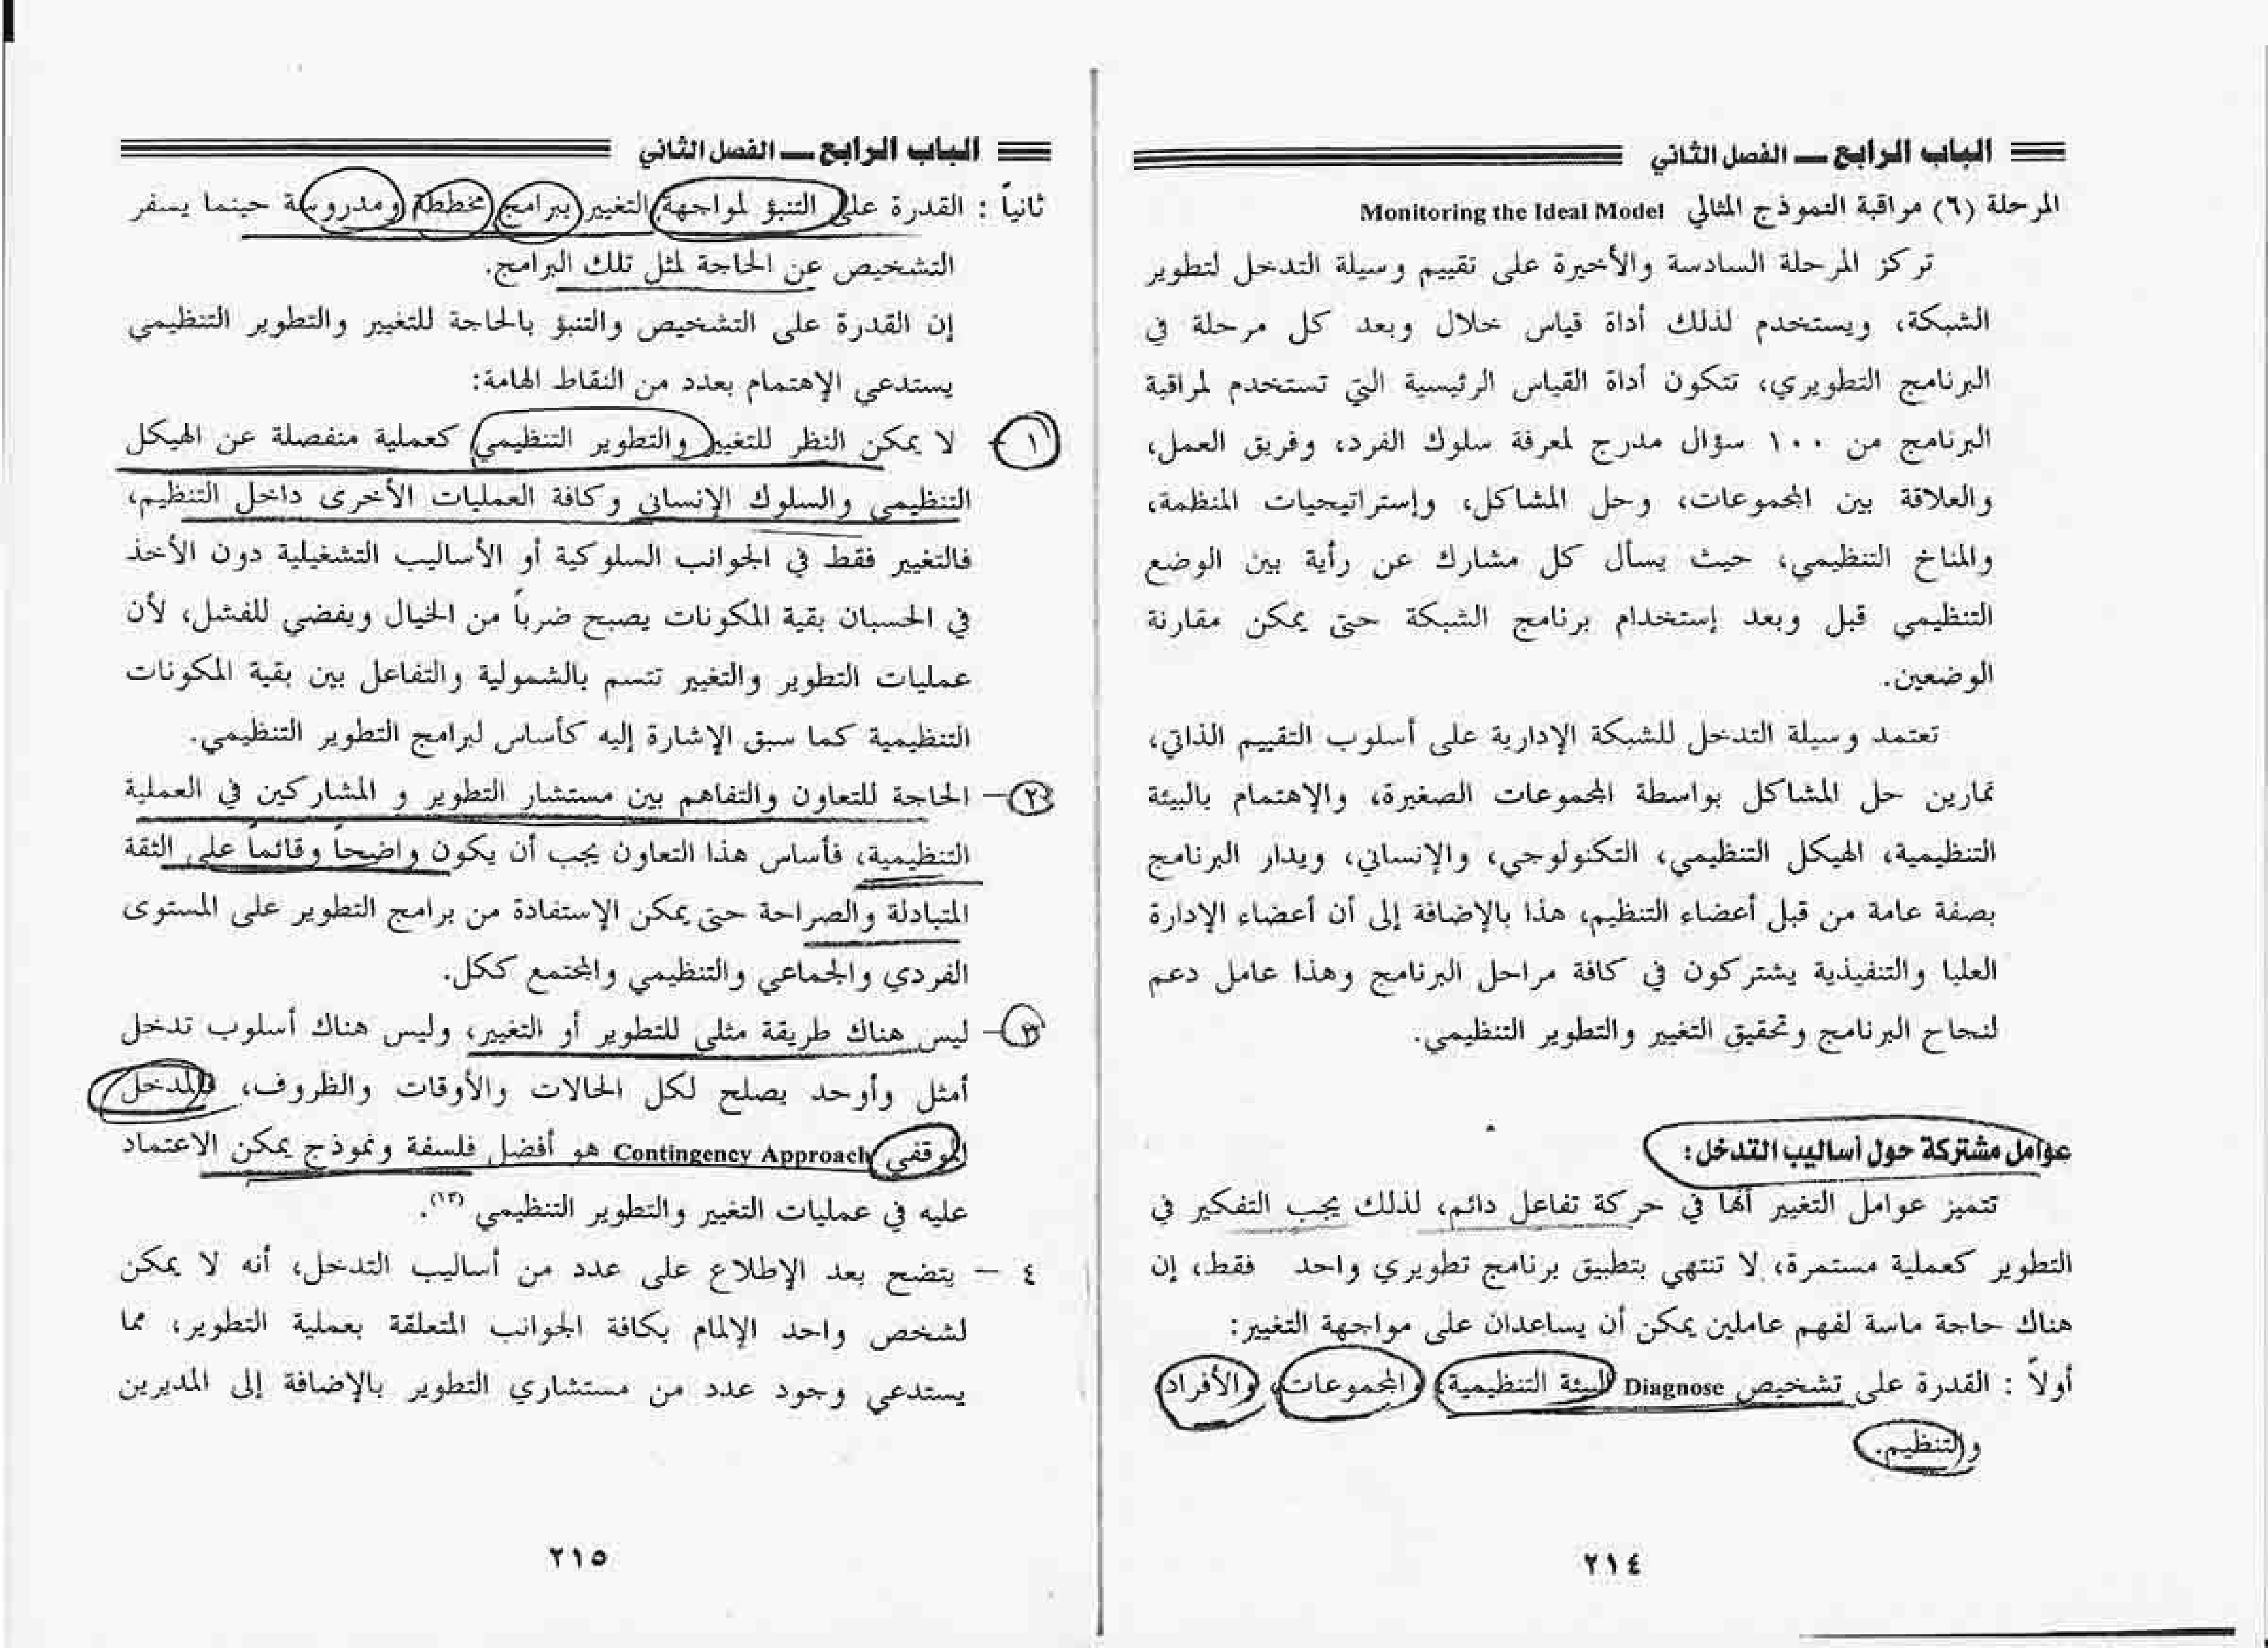 الباب الرابع ــ الفصل الثاني
المرحلة (٦) مراقبة النموذج المثالي Monitoring the Ideal Model
تركز المرحلة السادسة والأخيرة على تقييم وسيلة التدخل لتطوير
الشبكة، ويستخدم لذلك أداة قياس خلال وبعد كل مرحلة في
البرنامج التطويري، تتكون أداة القياس الرئيسية التي تستخدم لمراقبة
البرنامج من ١٠٠ سؤال مدرج لمعرفة سلوك الفرد، وفريق العمل،
والعلاقة بين المجموعات، وحل المشاكل، وإستراتيجيات المنظمة،
والمناخ التنظيمي، حيث يسأل كل مشارك عن رأية بين الوضع
التنظيمي قبل وبعد إستخدام برنامج الشبكة حتى يمكن مقارنة
الوضعين.
تعتمد وسيلة التدخل للشبكة الإدارية على أسلوب التقييم الذاتي،
تمارين حل المشاكل بواسطة المجموعات الصغيرة، والإهتمام بالبيئة
التنظيمية، الهيكل التنظيمي، التكنولوجي، والإنساني، ويدار البرنامج
بصفة عامة من قبل أعضاء التنظيم، هذا بالإضافة إلى أن أعضاء الإدارة
العليا والتنفيذية يشتركون في كافة مراحل البرنامج وهذا عامل دعم
لنجاح البرنامج وتحقيق التغيير والتطوير التنظيمي.
عوامل مشتركة حول أساليب التدخل:
تتميز عوامل التغيير أنها في حركة تفاعل دائم، لذلك يجب التفكير في
التطوير كعملية مستمرة، لا تنتهي بتطبيق برنامج تطويري واحد فقط، إن
هناك حاجة ماسة لفهم عاملين يمكن أن يساعدان على مواجهة التغيير:
أولاً : القدرة على تشخيص Diagnose البيئة التنظيمية، والمجموعات، والأفراد
والتنظيم.
٢١٤
الباب الرابع ــ الفصل الثاني
ثانياً : القدرة على التنبؤ لمواجهة التغيير ببرامج مخططة ومدروسة حينما يسفر
التشخيص عن الحاجة لمثل تلك البرامج.
إن القدرة على التشخيص والتنبؤ بالحاجة للتغيير والتطوير التنظيمي
يستدعي الإهتمام بعدد من النقاط الهامة:
١ - لا يمكن النظر للتغيير والتطوير التنظيمي كعملية منفصلة عن الهيكل
التنظيمي والسلوك الإنساني وكافة العمليات الأخرى داخل التنظيم،
فالتغيير فقط في الجوانب السلوكية أو الأساليب التشغيلية دون الأخذ
في الحسبان بقية المكونات يصبح ضرباً من الخيال ويفضي للفشل، لأن
عمليات التطوير والتغيير تتسم بالشمولية والتفاعل بين بقية المكونات
التنظيمية كما سبق الإشارة إليه كأساس لبرامج التطوير التنظيمي.
٢ - الحاجة للتعاون والتفاهم بين مستشار التطوير و المشاركين في العملية
التنظيمية، فأساس هذا التعاون يجب أن يكون واضحاً وقائماً على الثقة
المتبادلة والصراحة حتى يمكن الإستفادة من برامج التطوير على المستوى
الفردي والجماعي والتنظيمي والمجتمع ككل.
٣ - ليس هناك طريقة مثلى للتطوير أو التغيير، وليس هناك أسلوب تدخل
أمثل وأوحد يصلح لكل الحالات والأوقات والظروف، فالمدخل
الموقفي Contingency Approach هو أفضل فلسفة ونموذج يمكن الاعتماد
عليه في عمليات التغيير والتطوير التنظيمي (١٣).
٤ - يتضح بعد الإطلاع على عدد من أساليب التدخل، أنه لا يمكن
لشخص واحد الإلمام بكافة الجوانب المتعلقة بعملية التطوير، مما
يستدعي وجود عدد من مستشاري التطوير بالإضافة إلى المديرين
٢١٥